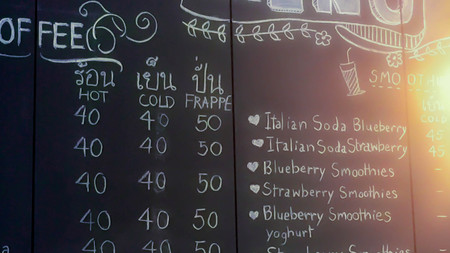 OFFEE
ร้อน เย็น ปั่น
HOT COLD FRAPPE
40 40 50
40 40 50
40 40 50
40 40 50
40 40 50
Italian Soda Blueberry
Italian Soda Strawberry
Blueberry Smoothies
Strawberry Smoothies
Blueberry Smoothies
yoghurt
Smoothies
SMO
45
45